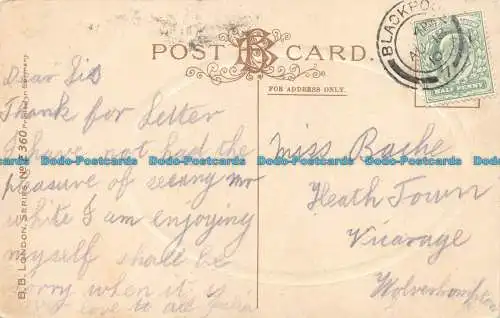 POST CARD.
FOR ADDRESS ONLY.
BLACKPOOL
HALF PENNY
B.B. LONDON, SERIES No E 360 Printed in Germany
Dear Sis
Thank for Letter
I have not had the
pleasure of seeang Mr
White I am enjoying
myself shall be
sorry when it is
love to all
Miss Bache
Heath Town
Vicarage
Wolverhampton
Dodo-Postcards Dodo-Postcards Dodo-Postcards